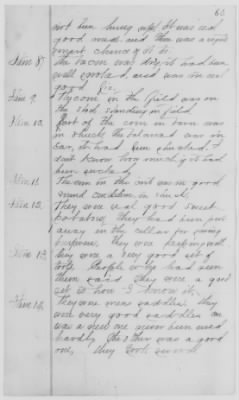 63
not been hung up. It was real
good meal, and there was a right
smart chance of it.
Item 8. The bacon was dry; it had been
well smoked, and was in real
good fix.
Item 9. The corn in the field was on
the stalk standing in field.
Item 10. Part of the corn in barn was
in shuck, the balance was in
ear, it had been shucked. I
don't know how much of it had
been shucked.
Item 11. The corn in the crib was in good
sound condition, in shuck.
Item 12. They were real good sweet
potatoes, they had been put
away in the cellar for
purpose. They were keeping well.
Item 13. They were a very good set of
tools. People who had seen
them said they were a good
set is how I know it.
Item 14. They were men saddles. They
were very good saddles. One
was a new one never been used
hardly. The other was a good
one, they both